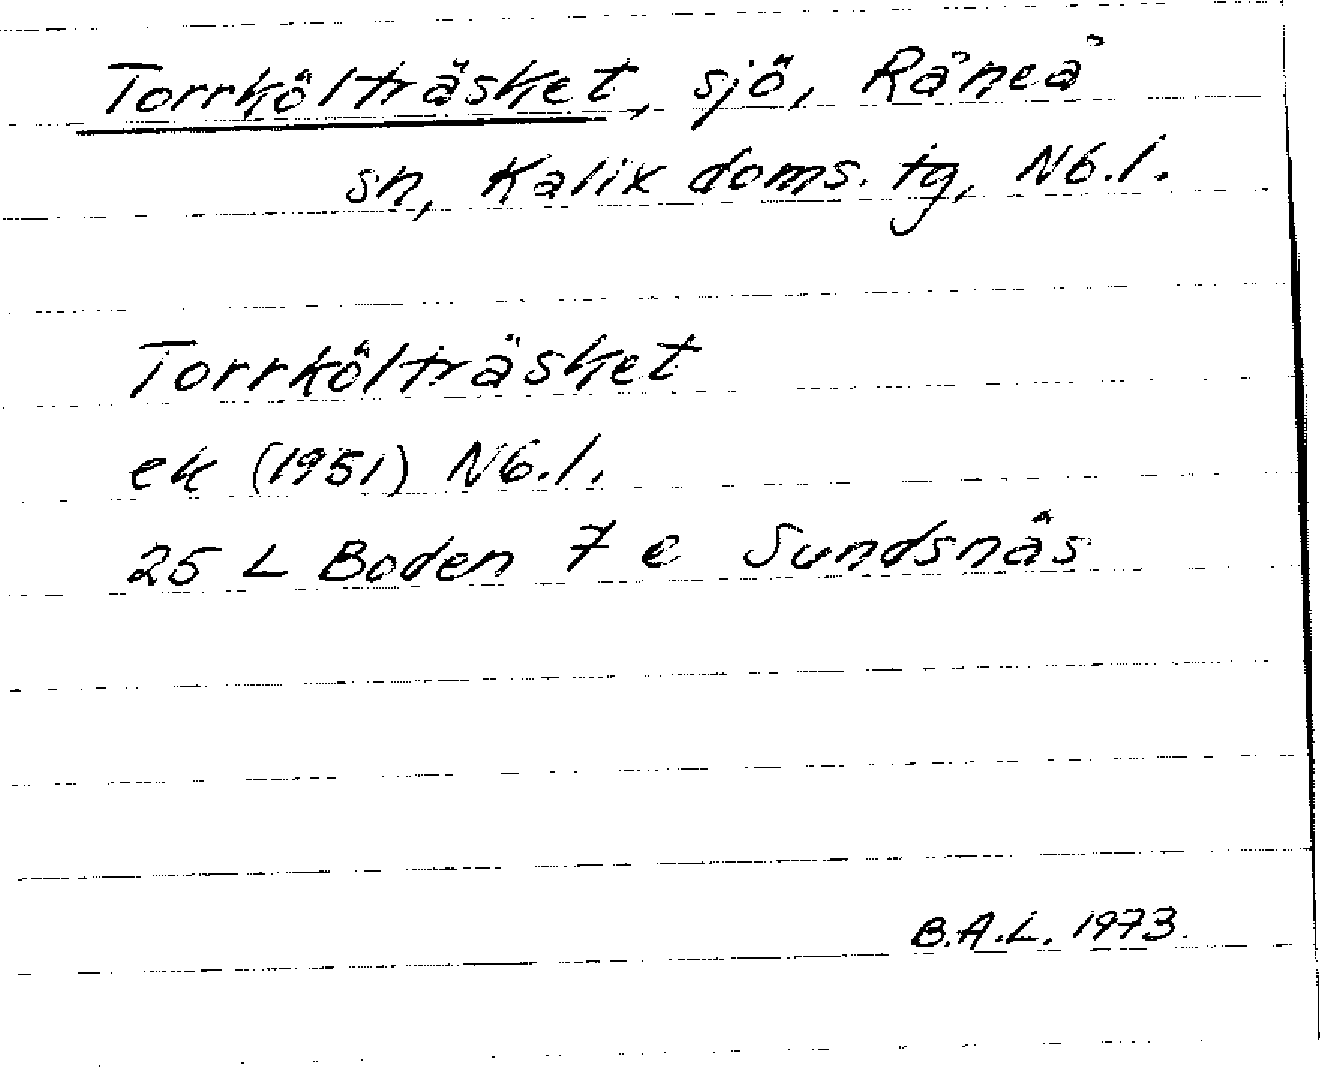 Torrkölträsket, sjö, Råneå
sn, Kalix doms. tg, Nb.l.
Torrkölträsket
ek (1951) Nb.l.
25 L Boden 7 e Sundsnäs
B.A.L. 1973.